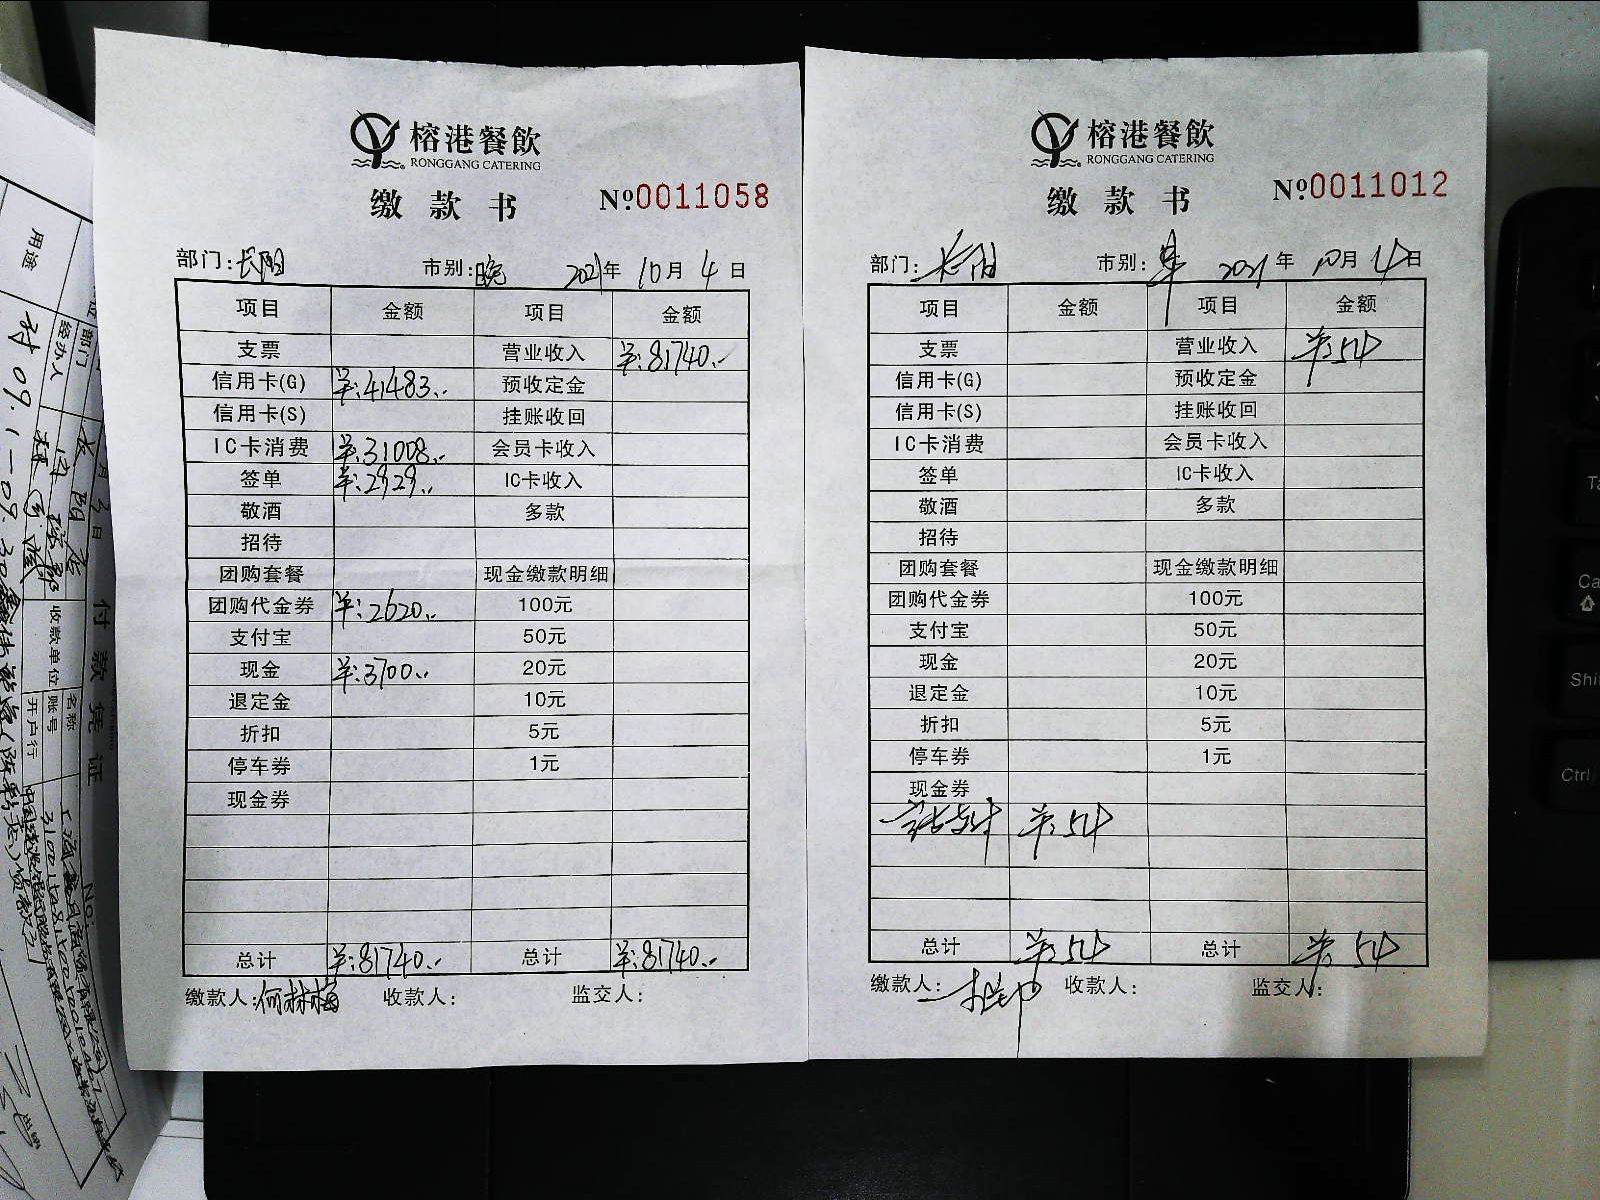 榕港餐飲
RONGGANG CATERING
缴款书 №0011058
部门:长阳 市别:晚 2021年10月4日
项目 金额 项目 金额
支票 营业收入 ¥:81740.-
信用卡(G) ¥:41483.- 预收定金
信用卡(S) 挂账收回
IC卡消费 ¥:31008.- 会员卡收入
签单 ¥:2929.- IC卡收入
敬酒 多款
招待
团购套餐 现金缴款明细
团购代金券 ¥:2620.- 100元
支付宝 50元
现金 ¥:3700.- 20元
退定金 10元
折扣 5元
停车券 1元
现金券
总计 ¥:81740.- 总计 ¥:81740.-
缴款人:何林梅 收款人: 监交人:
榕港餐飲
RONGGANG CATERING
缴款书 №0011012
部门:长阳 市别:早 2021年10月4日
项目 金额 项目 金额
支票 营业收入 ¥:54
信用卡(G) 预收定金
信用卡(S) 挂账收回
IC卡消费 会员卡收入
签单 IC卡收入
敬酒 多款
招待
团购套餐 现金缴款明细
团购代金券 100元
支付宝 50元
现金 20元
退定金 10元
折扣 5元
停车券 1元
现金券
¥:54
总计 ¥:54 总计 ¥:54
缴款人: 收款人: 监交人:
付款凭证
No:
用途
部门
经办人
收款单位
名称
账号
开户行
Ctrl